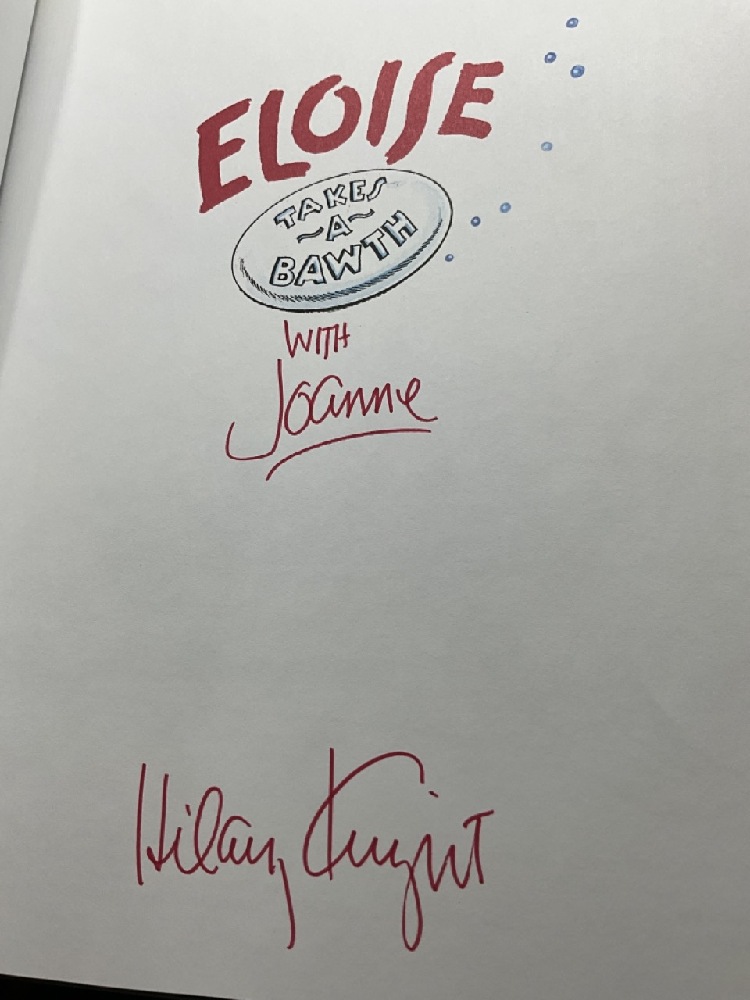 ELOISE
TAKES
~A~
BAWTH
WITH
Joanne
Hilary Knight